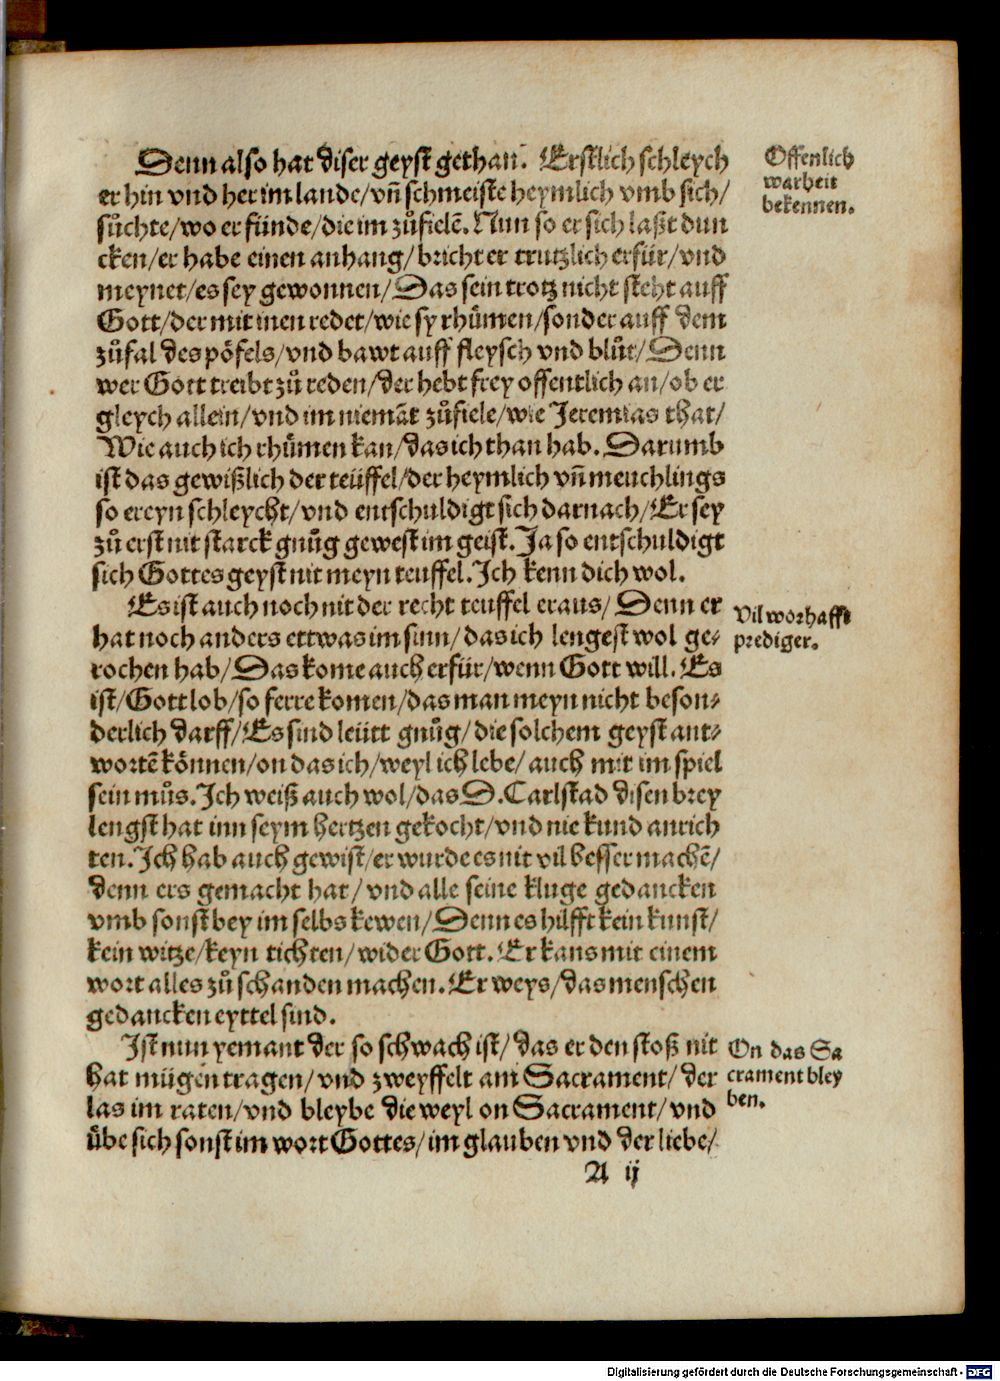 Denn also hat diser geyst gethan. Erstlich schleych
er hin vnd her im lande/vñ schmeiste heymlich vmb sich/
sůchte/wo er fünde/die im zůfielē. Nun so er sich laßt dun
cken/er habe einen anhang/bricht er trutzlich erfür/vnd
meynet/es sey gewonnen/Das sein trotz nicht steht auff
Gott/der mit inen redet/wie sy rhůmen/sonder auff dem
zůfal des pöfels/vnd bawt auff fleysch vnd blůt/Denn
wer Gott treibt zů reden/der hebt frey offentlich an/ob er
gleych allein/vnd im niemāt zůfiele/wie Jeremias that/
Wie auch ich rhůmen kan/das ich than hab. Darumb
ist das gewißlich der teüffel/der heymlich vñ meuchlings
so ereyn schleycht/vnd entschuldigt sich darnach/Er sey
zů erst nit starck gnůg gewest im geist. Ja so entschuldigt
sich Gottes geyst nit meyn teuffel. Ich kenn dich wol.
Es ist auch noch nit der recht teuffel eraus/Denn er
hat noch anders ettwas im sinn/das ich lengest wol ge-
rochen hab/Das kome auch erfür/wenn Gott will. Es
ist/Gott lob/so ferre komen/das man meyn nicht beson-
derlich darff/Es sind leütt gnůg/die solchem geyst ant-
wortē können/on das ich/weyl ich lebe/auch mit im spiel
sein můs. Ich weiß auch wol/das D. Carlstad disen brey
lengst hat inn seym hertzen gekocht/vnd nie kund anrich
ten. Ich hab auch gewist/er wurde es nit vil besser machē/
denn ers gemacht hat/vnd alle seine kluge gedancken
vmb sonst bey im selbs kewen/Denn es hilfft kein kunst/
kein witze/keyn tichten/wider Gott. Er kans mit einem
wort alles zů schanden machen. Er weys/das menschen
gedancken eyttel sind.
Ist nun yemant der so schwach ist/das er den stoß nit
hat mügen tragen/vnd zweyffelt am Sacrament/der
las im raten/vnd bleybe die weyl on Sacrament/vnd
übe sich sonst im wort Gottes/im glauben vnd der liebe/
A ij
Offenlich
warheit
bekennen.
Vil worhafft
prediger.
On das Sa
crament bley
ben.
Digitalisierung gefördert durch die Deutsche Forschungsgemeinschaft - DFG